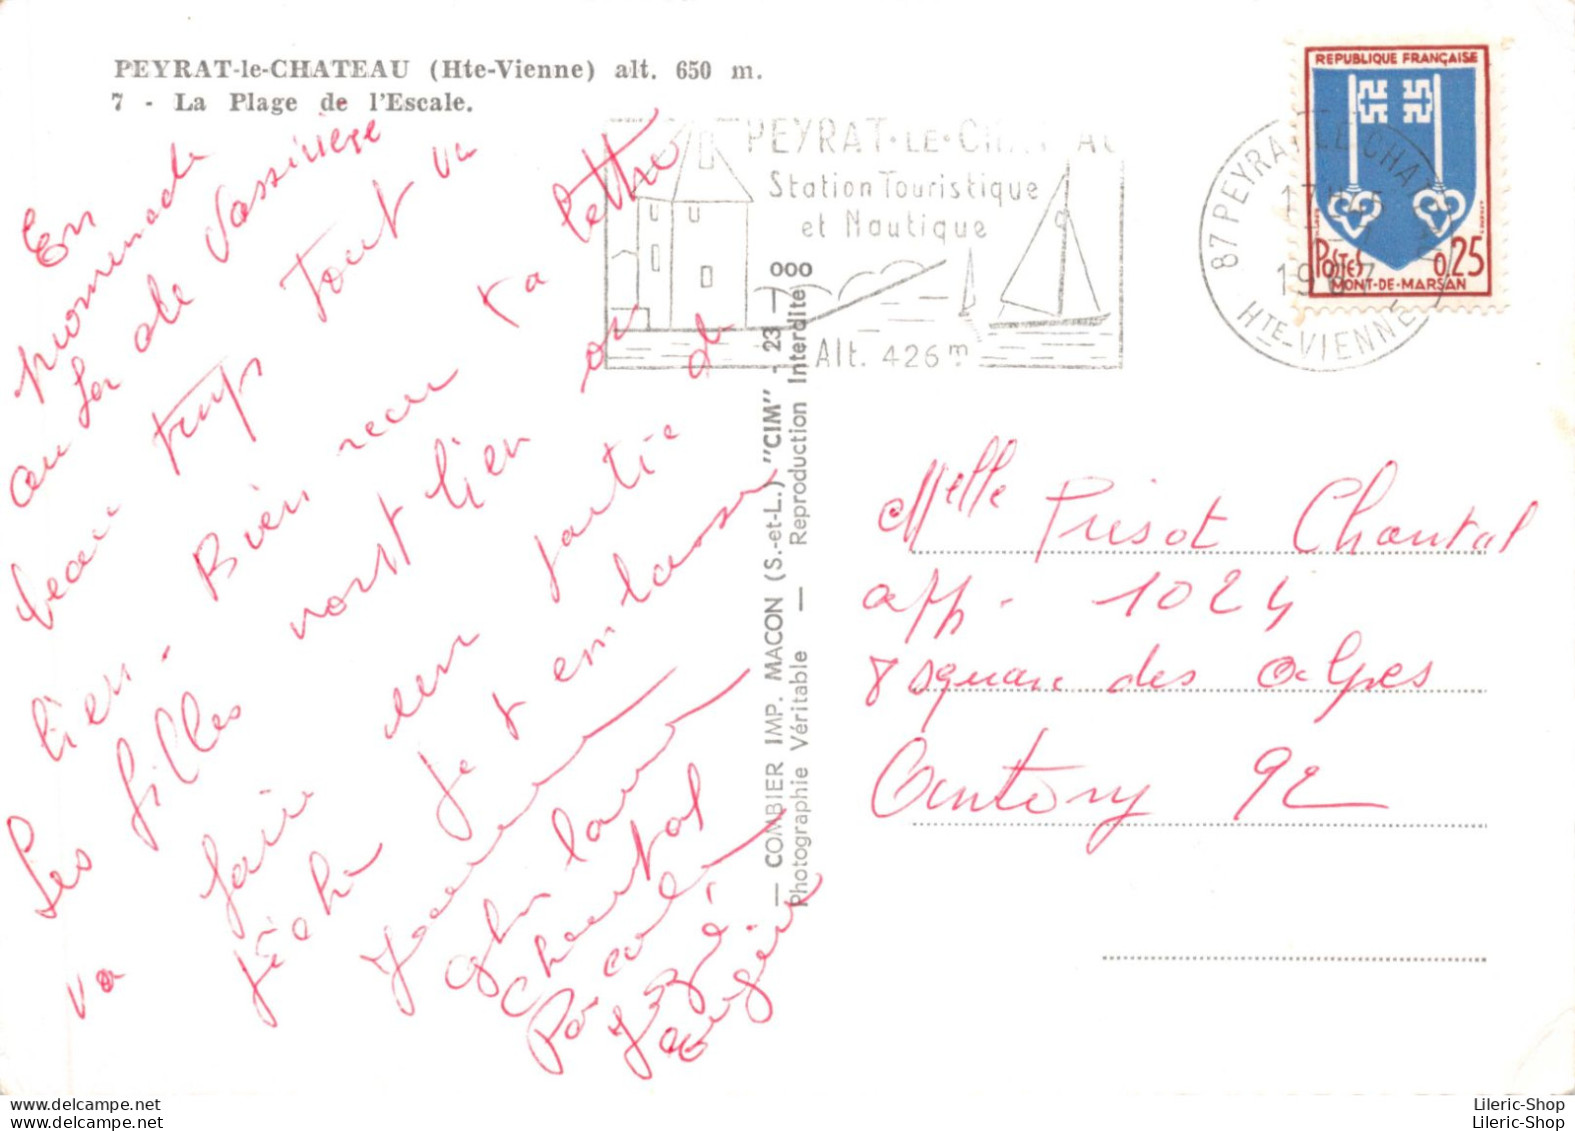 PEYRAT-le-CHATEAU (Hte-Vienne) alt. 650 m.
7 - La Plage de l'Escale.
En
promenade
au lac de Vassivière
beau temps Tout va
bien. Bien reçu ta lettre
Les filles vont bien on
va faire une partie de
pêche je t'embrasse
Chantal
Pascal
José
PEYRAT·LE·CHATEAU
Station Touristique
et Nautique
Alt. 426m
— COMBIER IMP. MACON (S.-et-L.) "CIM" - 23 —
Photographie Véritable — Reproduction Interdite 000
87 PEYRAT LE CHATEAU
17H45
1967
HTE-VIENNE
REPUBLIQUE FRANÇAISE
POSTES 0,25
MONT-DE-MARSAN
Melle Prisot Chantal
app. 1024
8 square des Alpes
Antony 92
www.delcampe.net
www.delcampe.net
Lileric-Shop
Lileric-Shop